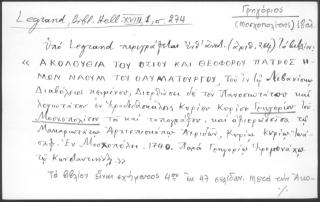 Legrand, Bibl. Hell. XVIII, 1, σ. 274
Γρηγόριος
(Μοσχοπολίτης)
Ὑπὸ Legrand περιγράφεται
« ΑΚΟΛΟΥΘΙΑ ΤΟΥ ΟΣΙΟΥ ΚΑΙ ΘΕΟΦΟΡΟΥ ΠΑΤΡΟΣ Η-
ΜΩΝ ΝΑΟΥΜ ΤΟΥ ΘΑΥΜΑΤΟΥΡΓΟΥ, Τοῦ ἐν τῇ
Διαβόλεως κειμένου, Διορθωθεῖσα δὲ τῶν Πανοσιωτάτων καὶ
λογιωτάτων ἐν Ἱεροδιδασκάλοις Κυρίου Κυρίου Γρηγορίου τοῦ
Μοσχοπολίτου τοῦ καὶ τυπογράφου. καὶ ἀφιερωθεῖσα τῷ
Μακαριωτάτῳ Ἀρχιεπισκόπῳ Ἀχριδῶν, Κυρίῳ Κυρίῳ Ἰωά-
σαφ. Ἐν Μοσχοπόλει. 1740. Παρὰ Γρηγορίῳ Ἱερομονάχῳ
τῷ Κωνσταντινίδῃ. »
Τὸ βιβλίον εἶναι σχήματος 4ον ἐκ 47 σελίδων. Μετὰ τὴν Ἀκο-